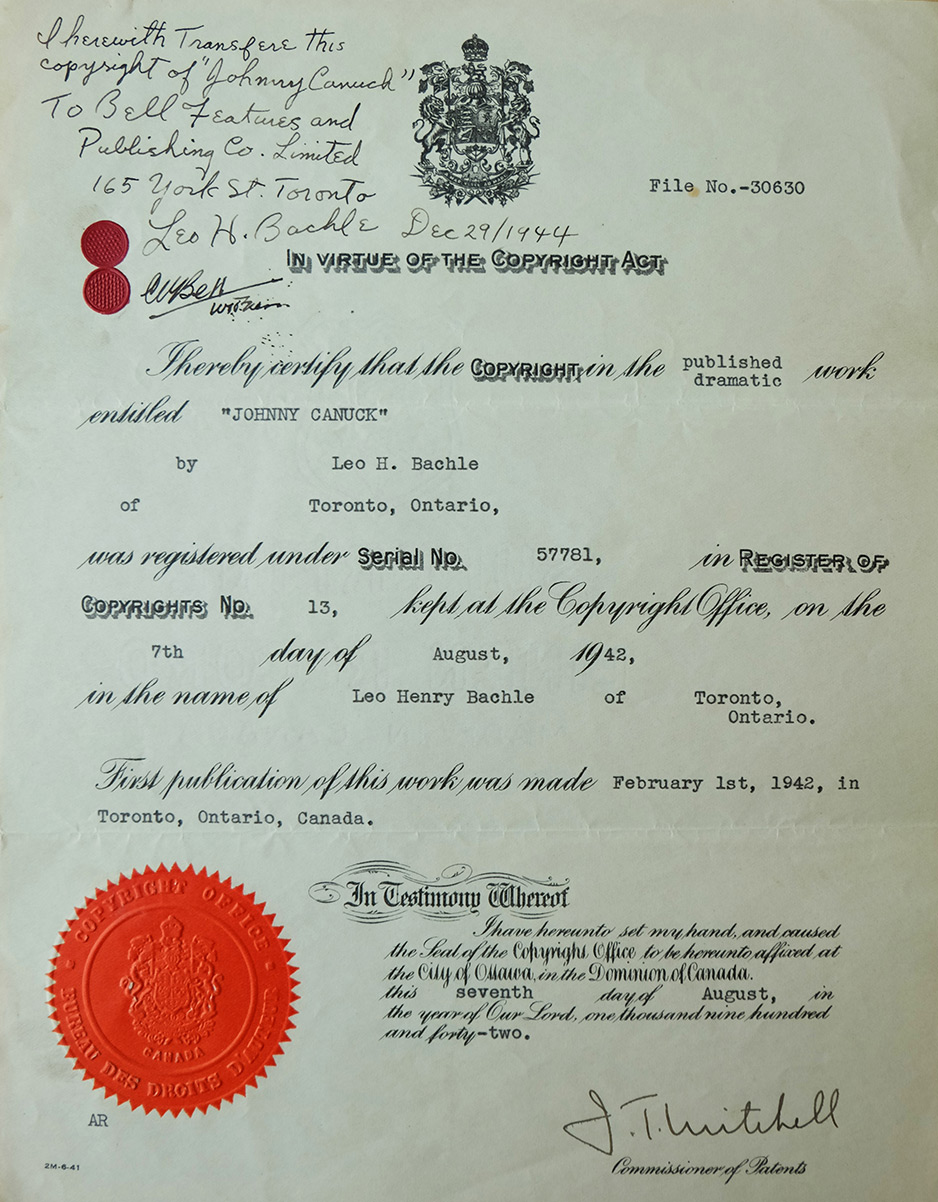 I herewith Transfere this
copyright of "Johnny Canuck"
To Bell Features and
Publishing Co. Limited
165 York St. Toronto
Leo H. Bachle Dec 29/1944
File No.-30630
IN VIRTUE OF THE COPYRIGHT ACT
I hereby certify that the COPYRIGHT in the published dramatic work
entitled "JOHNNY CANUCK"
by Leo H. Bachle
of Toronto, Ontario,
was registered under Serial No. 57781, in REGISTER OF
COPYRIGHTS No. 13, kept at the Copyright Office, on the
7th day of August, 1942,
in the name of Leo Henry Bachle of Toronto,
Ontario.
First publication of this work was made February 1st, 1942, in
Toronto, Ontario, Canada.
In Testimony Whereof
I have hereunto set my hand, and caused
the Seal of the Copyright Office to be hereunto affixed at
the City of Ottawa, in the Dominion of Canada.
this seventh day of August, in
the year of Our Lord, one thousand nine hundred
and forty-two.
COPYRIGHT OFFICE
CANADA
BUREAU DES DROITS D'AUTEUR
AR
J. T. Mitchell
Commissioner of Patents
2M-6-41